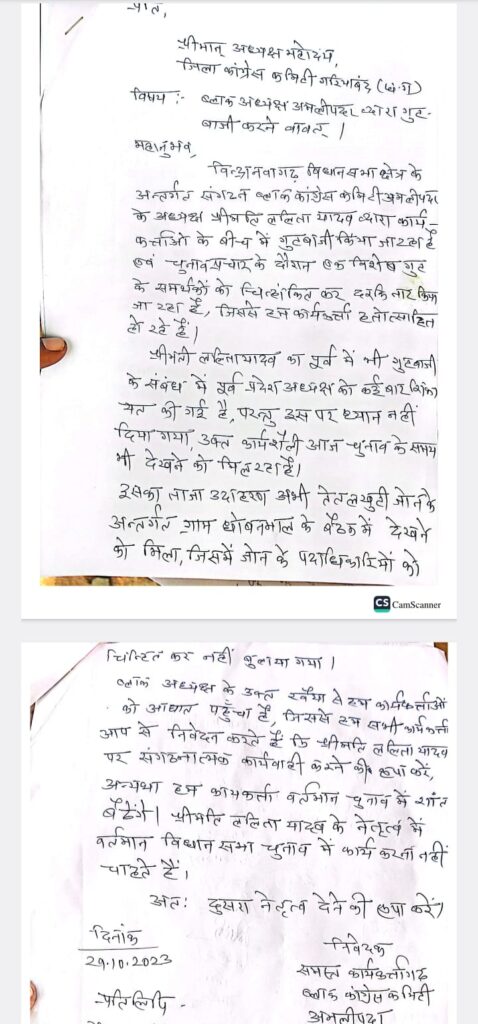 प्रति,
श्रीमान् अध्यक्ष महोदय,
जिला कांग्रेस कमिटी गरियाबंद (छ.ग)
विषय :- ब्लाक अध्यक्ष अमलीपदर द्वारा गुट-
बाजी करने बाबत् ।
महानुभव,
बिन्द्रानवागढ़ विधानसभा क्षेत्र के
अन्तर्गत संगठन ब्लाक कांग्रेस कमिटी अमलीपदर
के अध्यक्ष श्रीमति ललिता यादव द्वारा कार्य-
कर्त्ताओं के बीच में गुटबाजी किया जा रहा है
एवं चुनाव प्रचार के दौरान एक विशेष गुट
के समर्थकों को चिन्हांकित कर दरकिनार किया
जा रहा है, जिससे हम कार्यकर्त्ता हतोत्साहित
हो रहे हैं।
श्रीमती ललिता यादव का पूर्व में भी गुटबाजी
के संबंध में पूर्व प्रदेश अध्यक्ष को कई बार शिका
यत की गई है, परन्तु इस पर ध्यान नहीं
दिया गया, उक्त कार्यशैली आज चुनाव के समय
भी देखने को मिल रहा है।
इसका ताजा उदाहरण अभी तेतलखुटी जोन के
अन्तर्गत ग्राम धोबनमाल के बैठक में देखने
को मिला, जिसमें जोन के पदाधिकारियों को
CS CamScanner
चिन्हित कर नहीं बुलाया गया।
ब्लाक अध्यक्ष के उक्त रवैया से हम कार्यकर्त्ताओं
को आघात पहुँचा है, जिससे हम सभी कार्यकर्त्ता
आप से निवेदन करते हैं कि श्रीमति ललिता यादव
पर संगठनात्मक कार्यवाही करने की कृपा करें,
अन्यथा हम कार्यकर्त्ता वर्तमान चुनाव में शांत
बैठेंगे। श्रीमति ललिता यादव के नेतृत्व में
वर्तमान विधान सभा चुनाव में कार्य करना नहीं
चाहते हैं।
अतः दुसरा नेतृत्व देने की कृपा करें।
दिनांक
29.10.2023
निवेदक
समस्त कार्यकर्त्तागढ़
ब्लाक कांग्रेस कमिटी
अमलीपदर
प्रतिलिपि -